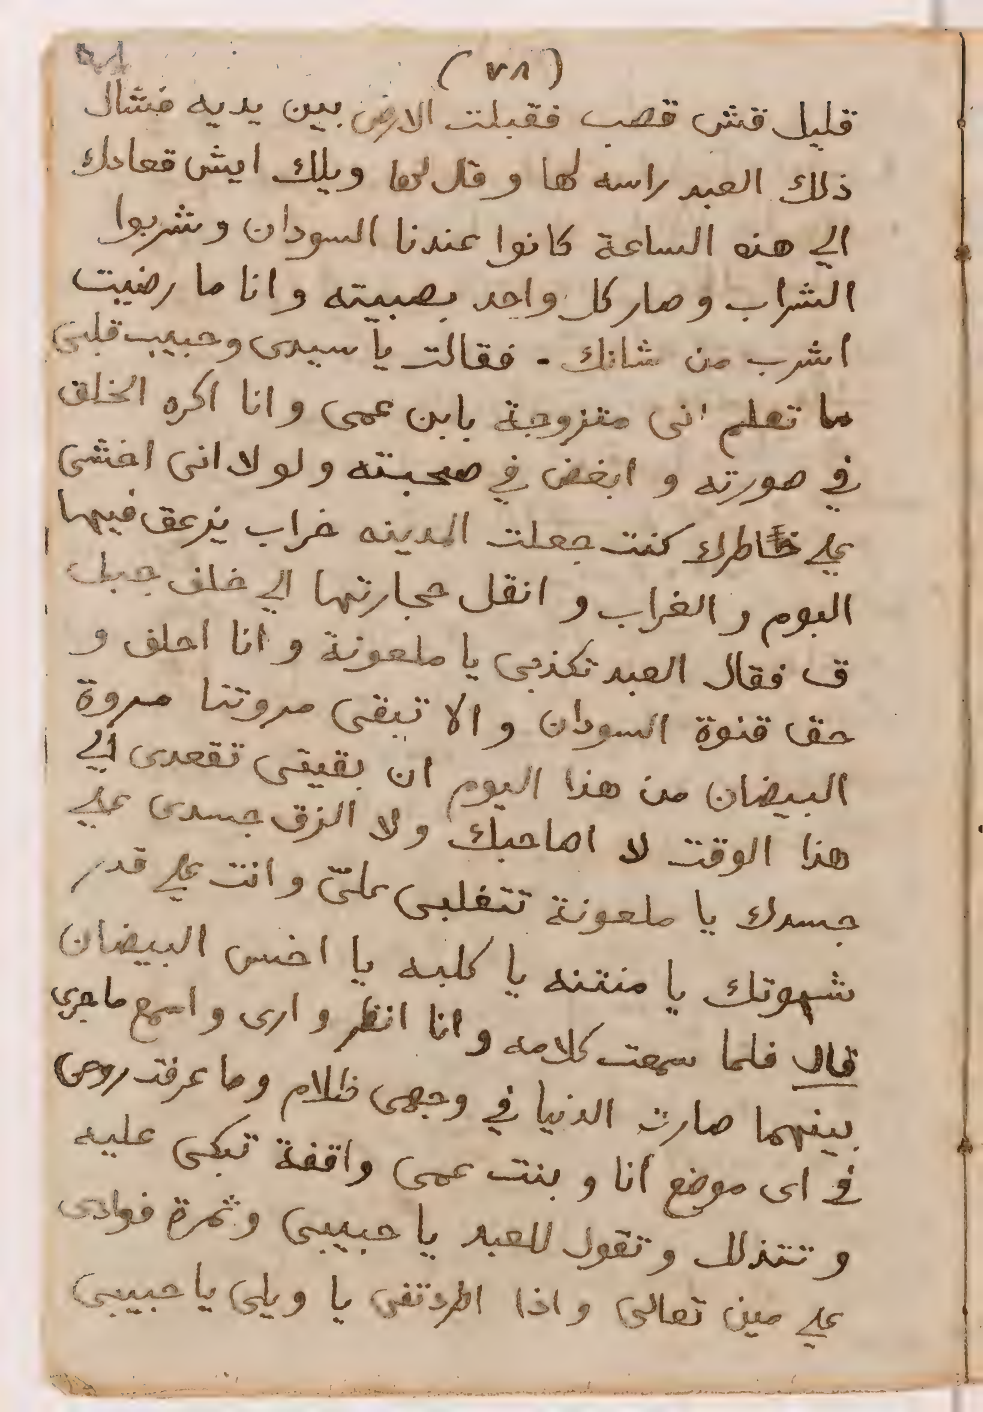 (٧٨)
قليل قش قصب فقبلت الارض بين يديه فشال
ذلك العبد راسه لها و قال لها ويلك ايش قعادك
الي هذه الساعة كانوا عندنا السودان و شربوا
الشراب و صار كل واحد بصبيته و انا ما رضيت
اشرب من شانك - فقالت يا سيدى و حبيب قلبى
ما تعلم انى متزوجة بابن عمى و انا اكره الخلق
في صورته و ابغض في صحبته و لو لا انى اخشى
علي خاطرك كنت جعلت المدينه خراب يزعق فيها
البوم و الغراب و انقل حجارتها الي خلف جبل
ق فقال العبد تكذبى يا ملعونة و انا احلف و
حق قنوة السودان و الا تبقى مروتنا مروة
البيضان من هذا اليوم ان بقيتى تقعدى الي
هذا الوقت لا اصاحبك و لا الزق جسدى علي
جسدك يا ملعونة تتغلبى علىّ و انت علي قدر
شهوتك يا منتنه يا كلبه يا اخس البيضان
قال فلما سمعت كلامه و انا انظر و ارى و اسمع ما جرى
بينهما صارت الدنيا في وجهى ظلام و ما عرفت روحى
في اى موضع أنا و بنت عمى واقفة تبكى عليه
و تتذلل و تقول للعبد يا حبيبى و ثمرة فوادى
علي مين تعالى و اذا اطردتنى يا ويلى يا حبيبى